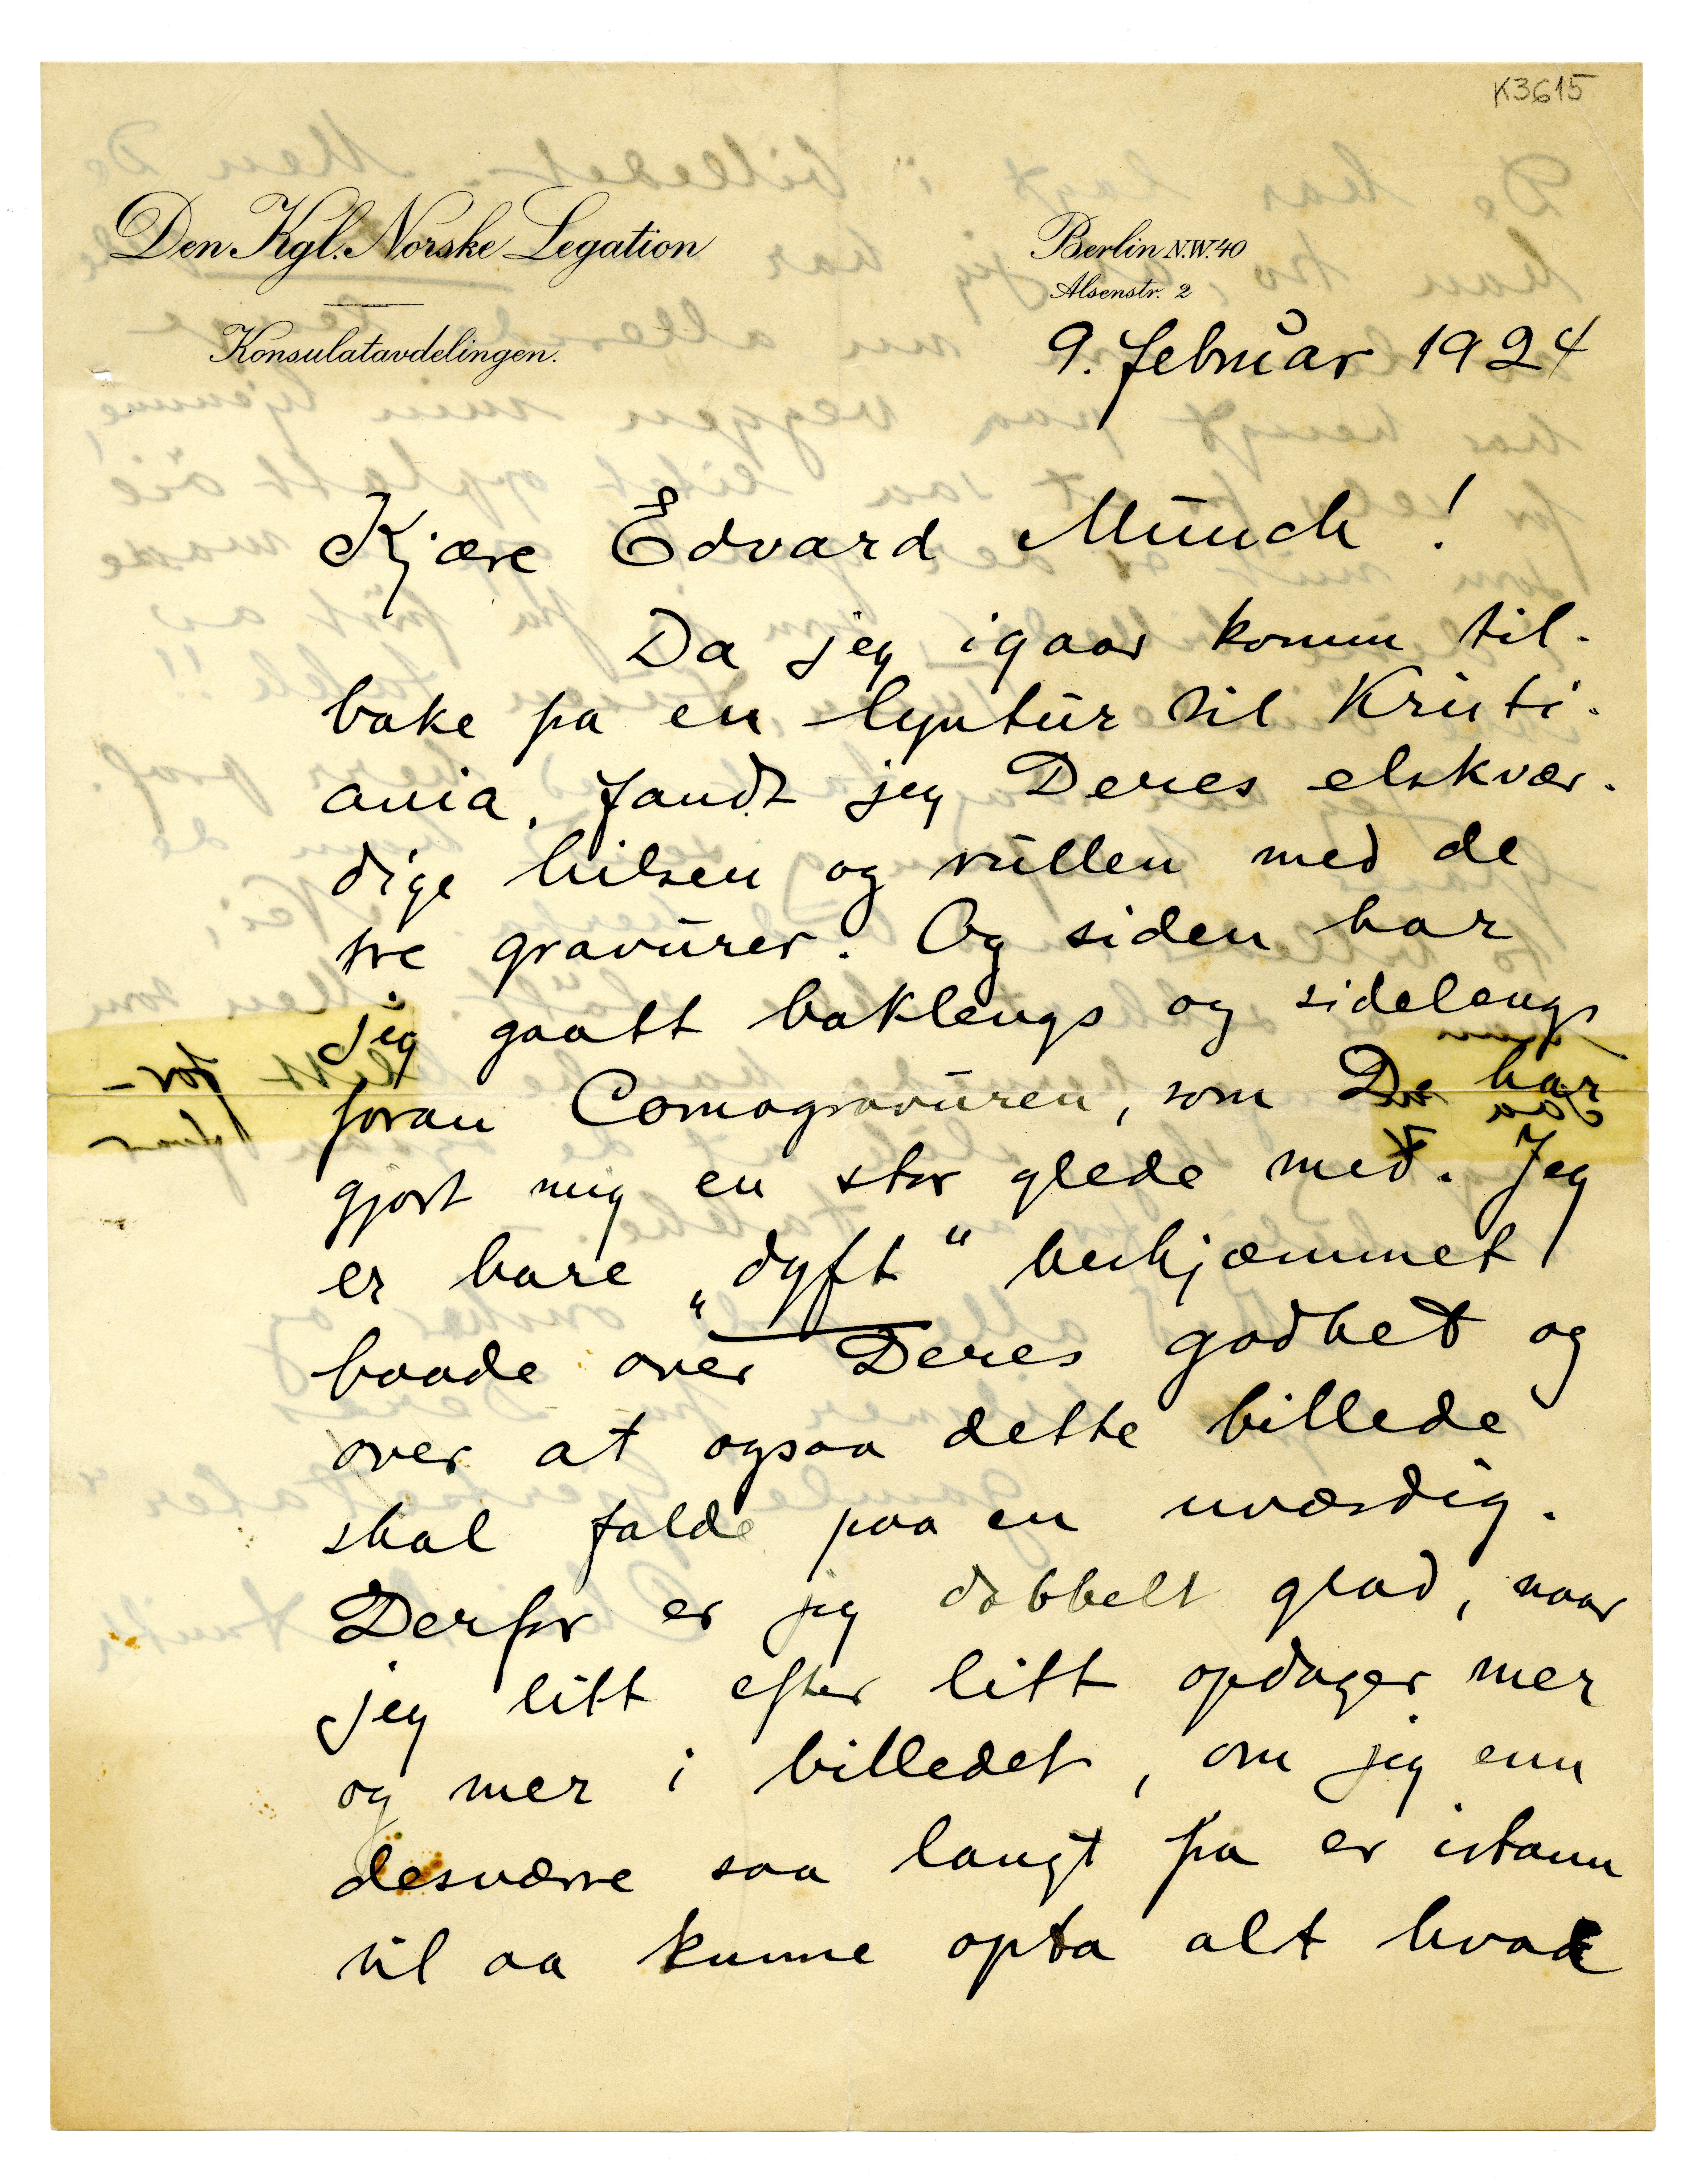 K3615
Den Kgl. Norske Legation
Konsulatavdelingen.
Berlin N.W.40
Alsenstr. 2
9. februar 1924
Kjære Edvard Munch!
Da jeg igaar komm til-
bake fra en lyntur til Kristi-
ania, fandt jeg Deres elskvær-
dige hilsen og rullen med de
tre gravurer. Og siden har
jeg gaatt baklengs og sidelengs
foran Comogravuren, som De har
gjort mig en stor glede med. Jeg
er bare „dyft“ beskjæmmet
baade over Deres godhet og
over at ogsaa dette billede
skal falde paa en uværdig.
Derfor er jeg dobbelt glad, naar
jeg litt efter litt opdager mer
og mer i billedet, om jeg enn
desværre saa langt fra er istann
til aa kunne opta alt hvad